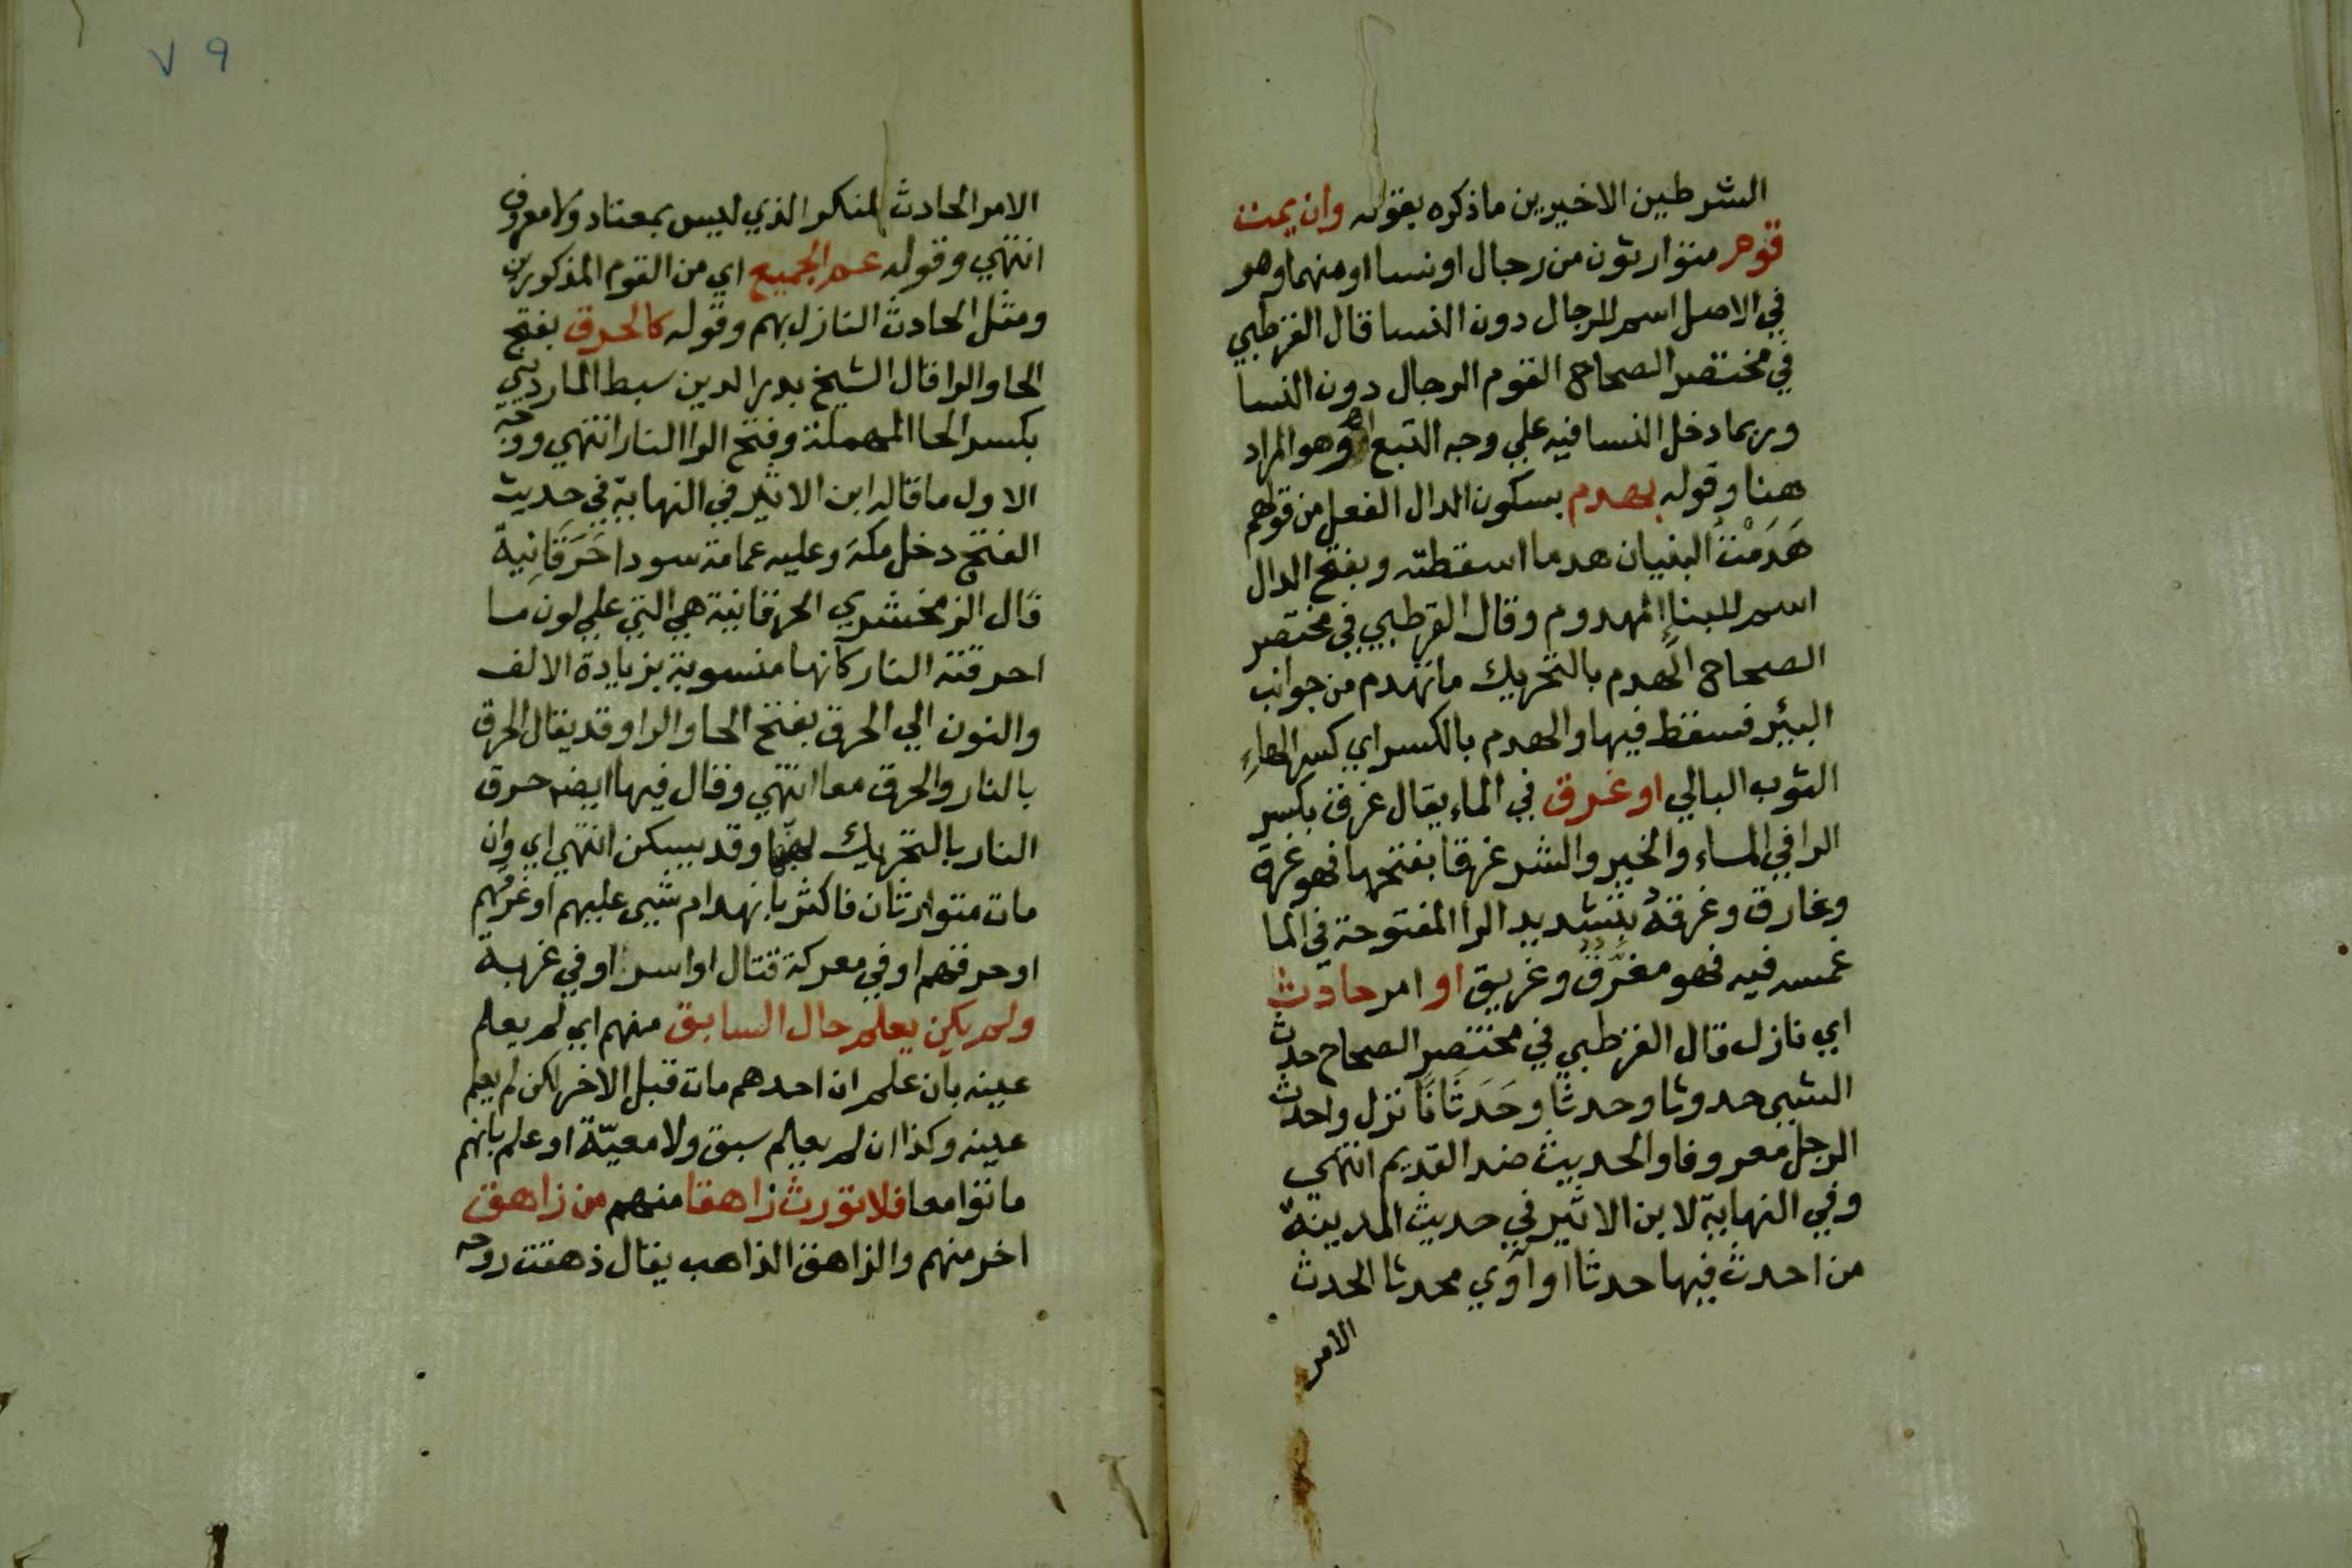 الشرطين الاخيرين ما ذكره بقوله وان يمت
قوم متوارثون من رجال او نسا او منهما وهو
في الاصل اسم للرجال دون النسا قال القرطبي
في مختصر الصحاح القوم الرجال دون النسا
وربما دخل النسا فيه علي وجه التبع اهـ وهو المراد
هنا وقوله بهدم بسكون الدال الفعل من قولهم
هَدَمْتُ البنيان هدما اسقطته وبفتح الدال
اسم للبناء المهدوم وقال القرطبي في مختصر
الصحاح الهدم بالتحريك ما تهدم من جوانب
البئر فسقط فيها والهدم بالكسر اي كسر الهاءِ
الثوب البالي او غرق في الماء يقال غرق بكسر
الرا في الماء والخير والشر غرقا بفتحها فهو غرق
وغارق وغرقهُ بتشديد الرا المفتوحة في الما
غمسه فيه فهو مغرَّقٌ وغريق او امر حادث
اي نازل قال القرطبي في مختصر الصحاح حدث
الشيي حدوثا وحدثا وحَدَثَانًا نزل واحدث
الرجل معروفا والحديث ضد القديم انتهي
وفي النهاية لابن الاثير في حديث المدينة
من احدث فيها حدثا او آوي محدثا الحدث
الامر
٧٩
الامر الحادث المنكر الذي ليس بمعتاد ولا معروف
انتهي وقوله عم الجميع اي من القوم المذكورين
ومثل الحادث النازل بهم وقوله كالحرق بفتح
الحا والرا قال الشيخ بدر الدين سبط المارديني
بكسر الحا المهملة وفتح الرا النار انتهي ووجه
الاول ما قاله ابن الاثير في النهاية في حديث
الفتح دخل مكة وعليه عمامة سودا حَرَقَانِية
قال الزمخشري الحرقانية هي التي علي لون ما
احرقته النار كانها منسوبة بزيادة الالف
والنون الي الحرق بفتح الحا والرا وقد يقال الحرق
بالنار والحرق معا انتهي وقال فيها ايضه حرق
النار بالتحريك لهبها وقد يسكن انتهي اي وان
مات متوارثان فاكثر بانهدام شيي عليهم او غرقهم
او حرقهم او في معركة قتال او اسر او في غربة
ولم يكن يعلم حال السابق منهم اي لم يعلم
عينه بان علم ان احدهم مات قبل الاخر لكن لم يعلم
عينه وكذا ان لم يعلم سبق ولا معيّة او علم بانهم
ماتوا معا فلا تورث زاهقا منهم من زاهق
اخر منهم والزاهق الذاهب يقال ذهقت روحه